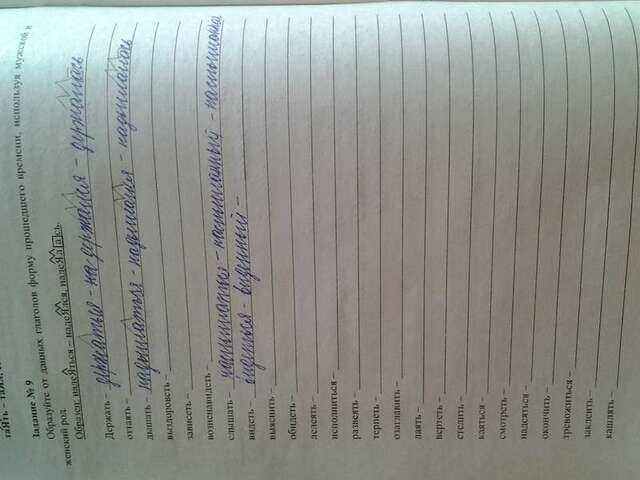 таять - таял, 
Задание № 9
Образуйте от данных глаголов форму прошедшего времени, используя мужской и
женский род
Образец: надеяться – надеялся, надеялась.
Держать – держаться - на держался - держалась
оттаять –
дышать – надышаться - надышался - надышалась
выздороветь –
зависеть –
возненавидеть –
слышать –
видеть – видеться - виденный -
выяснить –
обидеть –
лелеять –
исполниться –
развеять –
терпеть –
озаглавить –
лаять –
вертеть –
стелить –
каяться –
смотреть –
надеяться –
окончить –
тревожиться –
заклеить –
кашлять –